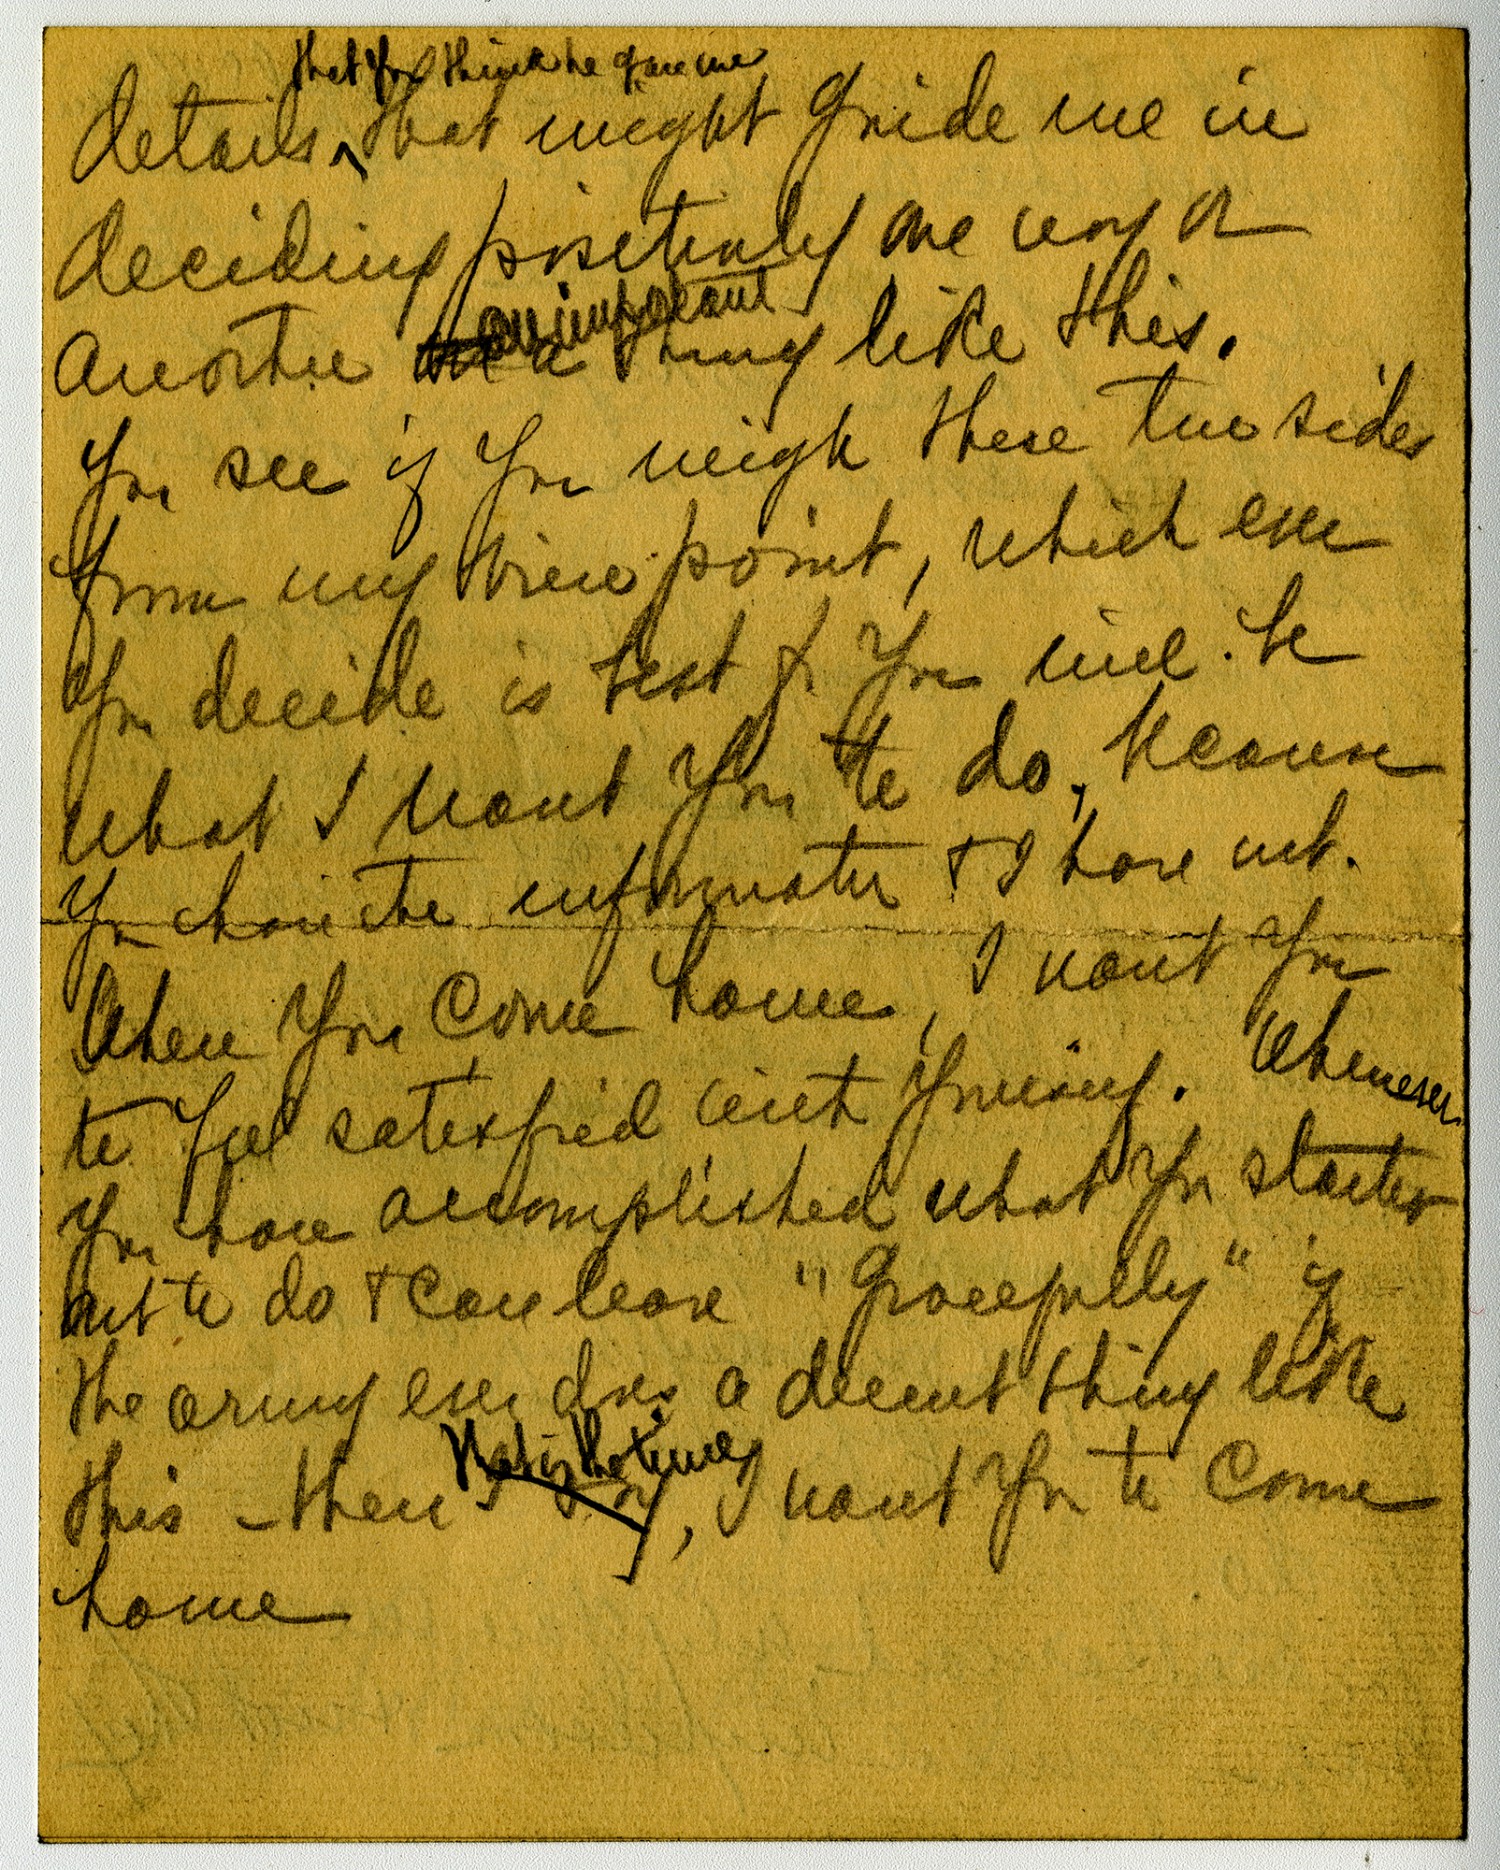 that you think he gave me
details, that might guide me in
deciding positively one way or
an important
another a thing like this.
You see if you weigh these two sides
from my view point, which ever
you decide is best for you will be
what I want you to do, because
you have the information & I have not.
When you come home, I want you
to feel satisfied with yourself. Whenever
you have accomplished what you started
out to do & can leave "gracefully" if
the army ever does a decent thing like
that is the time
this - then I, I want you to come
home